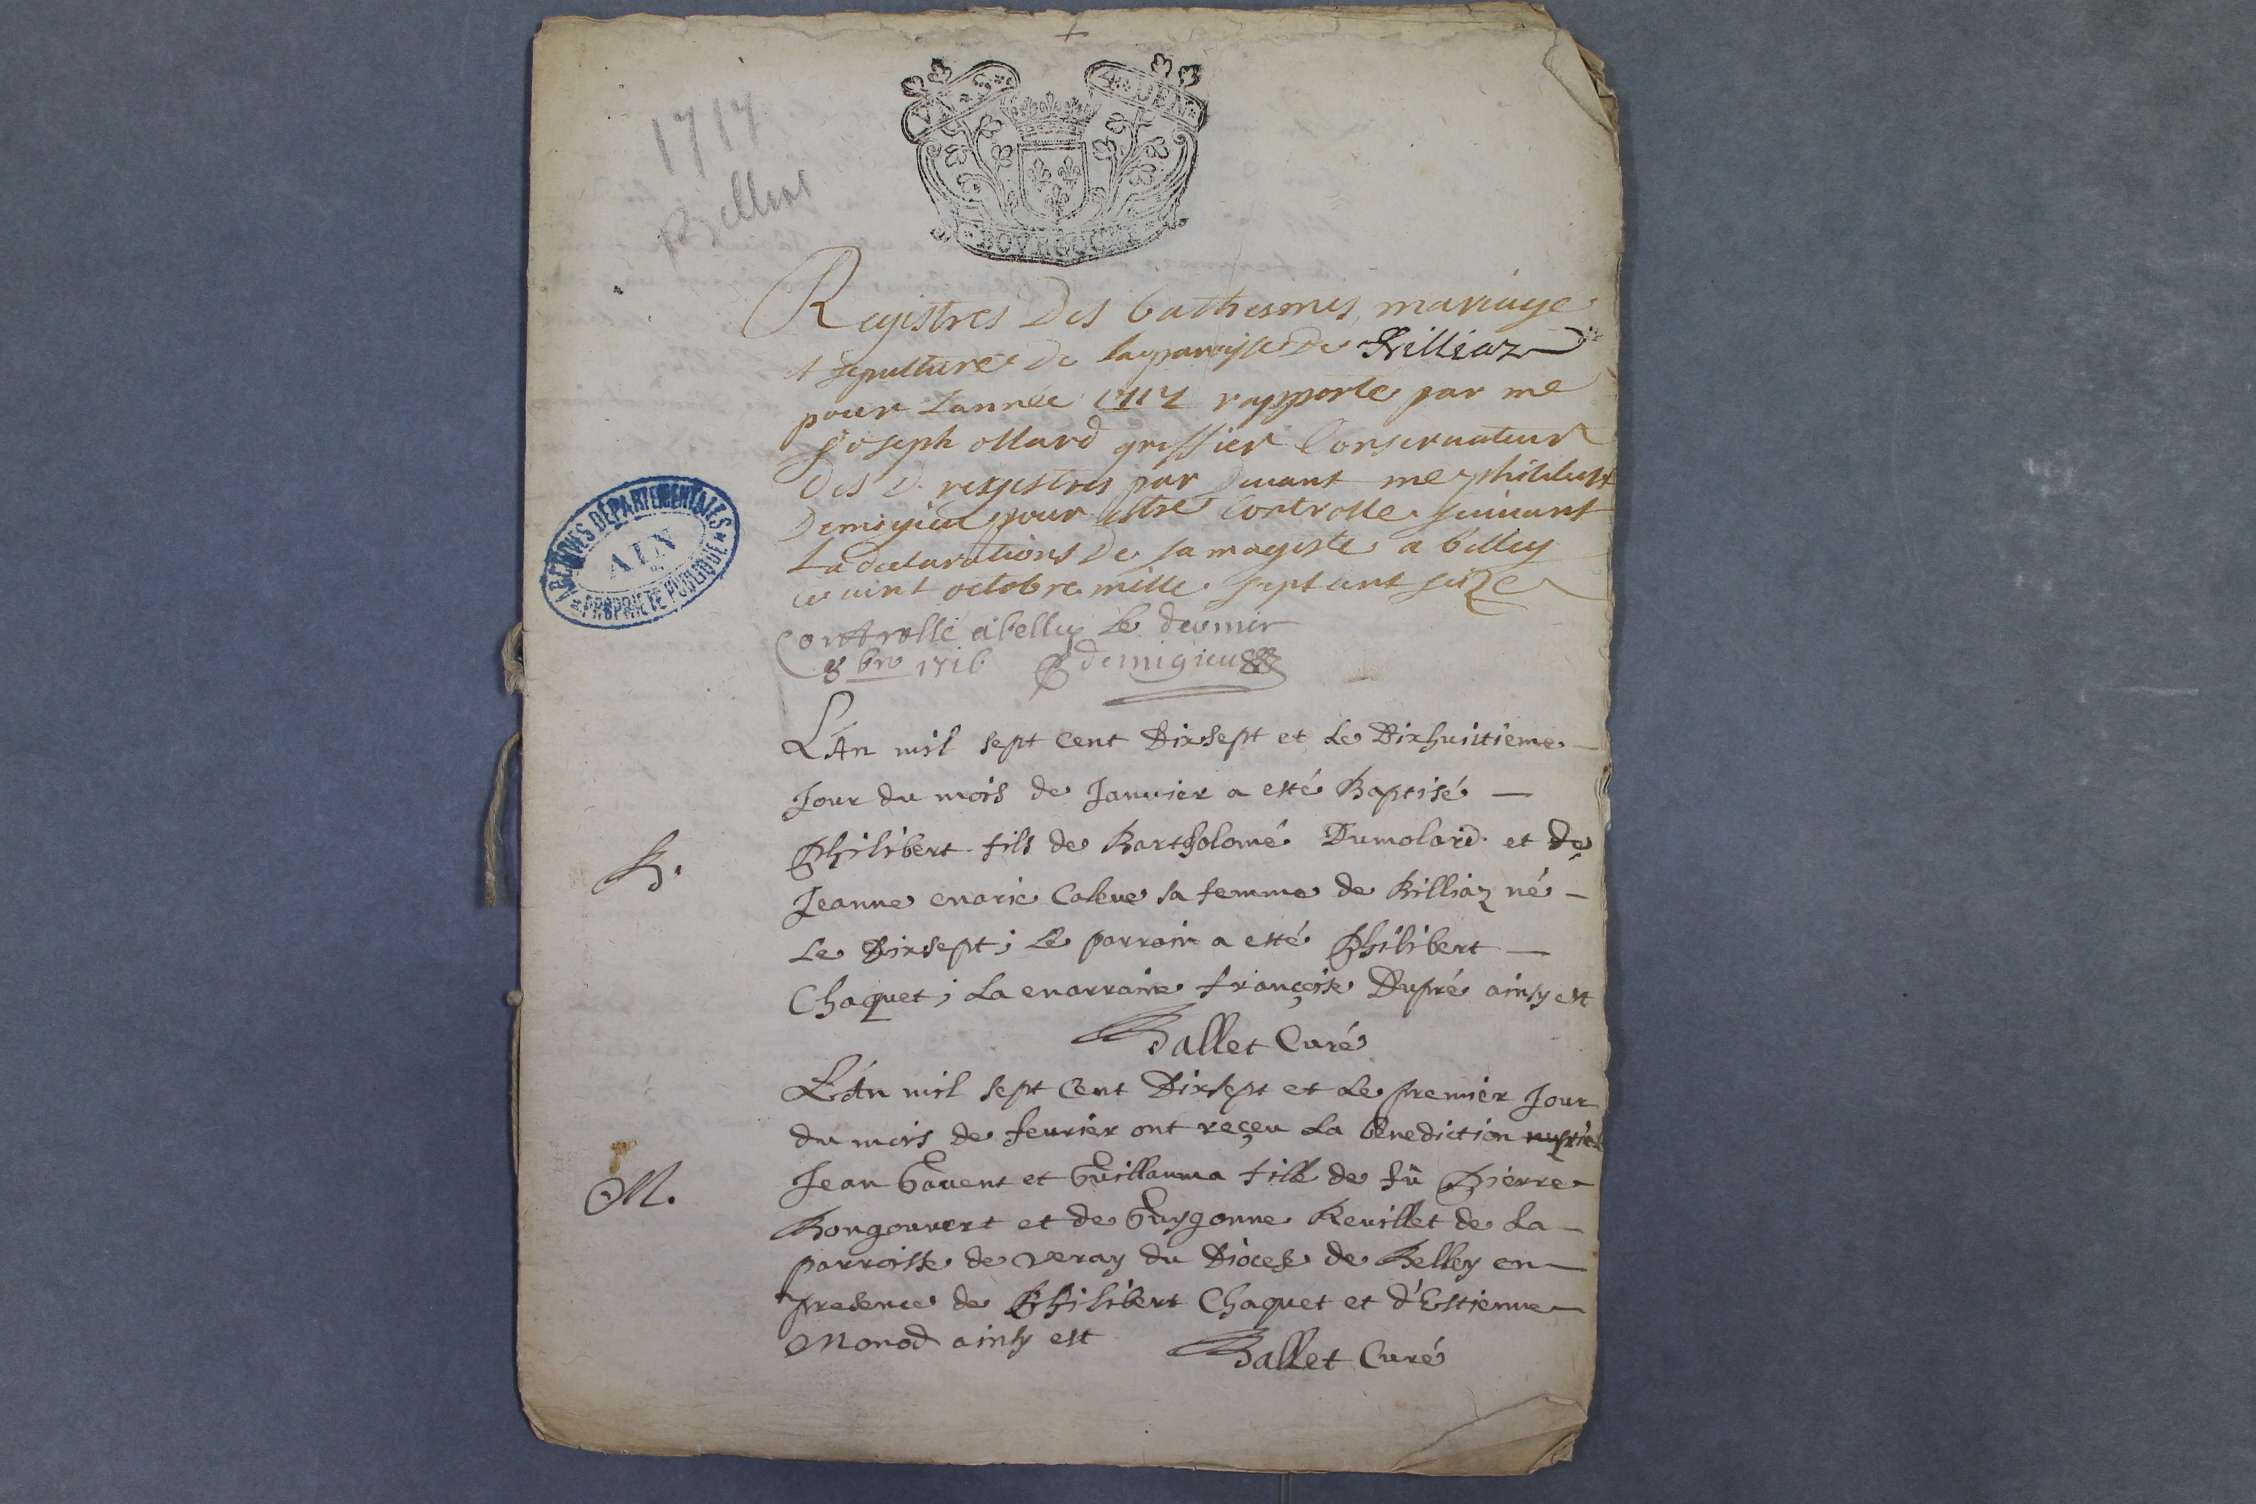 1717
VN S
4 DEN
BOVRGOGNE
Registres des bathesmes, mariage
et sepultures de la parroisse de Billiaz
pour l'année 1717 rapporte par me
Joseph ollard greffier Conservateur
des d. registres par devant me philibert
Demigieu pour estre Controlle suivant
La declarations de sa mageste a belley
ce vint octobre mille sept cent seize
Controlle a belley le dernier
8bre 1716 demigieu
ARCHIVES DÉPARTEMENTALES
AIN
PROPRIÉTÉ PUBLIQUE
L'An mil sept cent Dixsept et le Dixhuitieme
Jour du mois de Janvier a esté Baptisé
B.
Philibert fils de Bartholomé Dumolard et de
Jeanne marie Caleve sa femme de Billiaz né
le Dixsept; le parrain a esté Philibert
Chaquet; la marraine françoise Dupré ainsy est
Ballet Curé
L'An mil sept Cent Dixsept et le premier Jour
du mois de fevrier ont reçeu la benediction nuptiale
M.
Jean Gavent et Guillauma fille de fû Pierre
Bongouvert et de Guygonne Revillet de la
parroisse de veray du Diocese de Belley en
presence de Philibert Chaquet et d'Estienne
Monod ainsy est
Ballet Curé